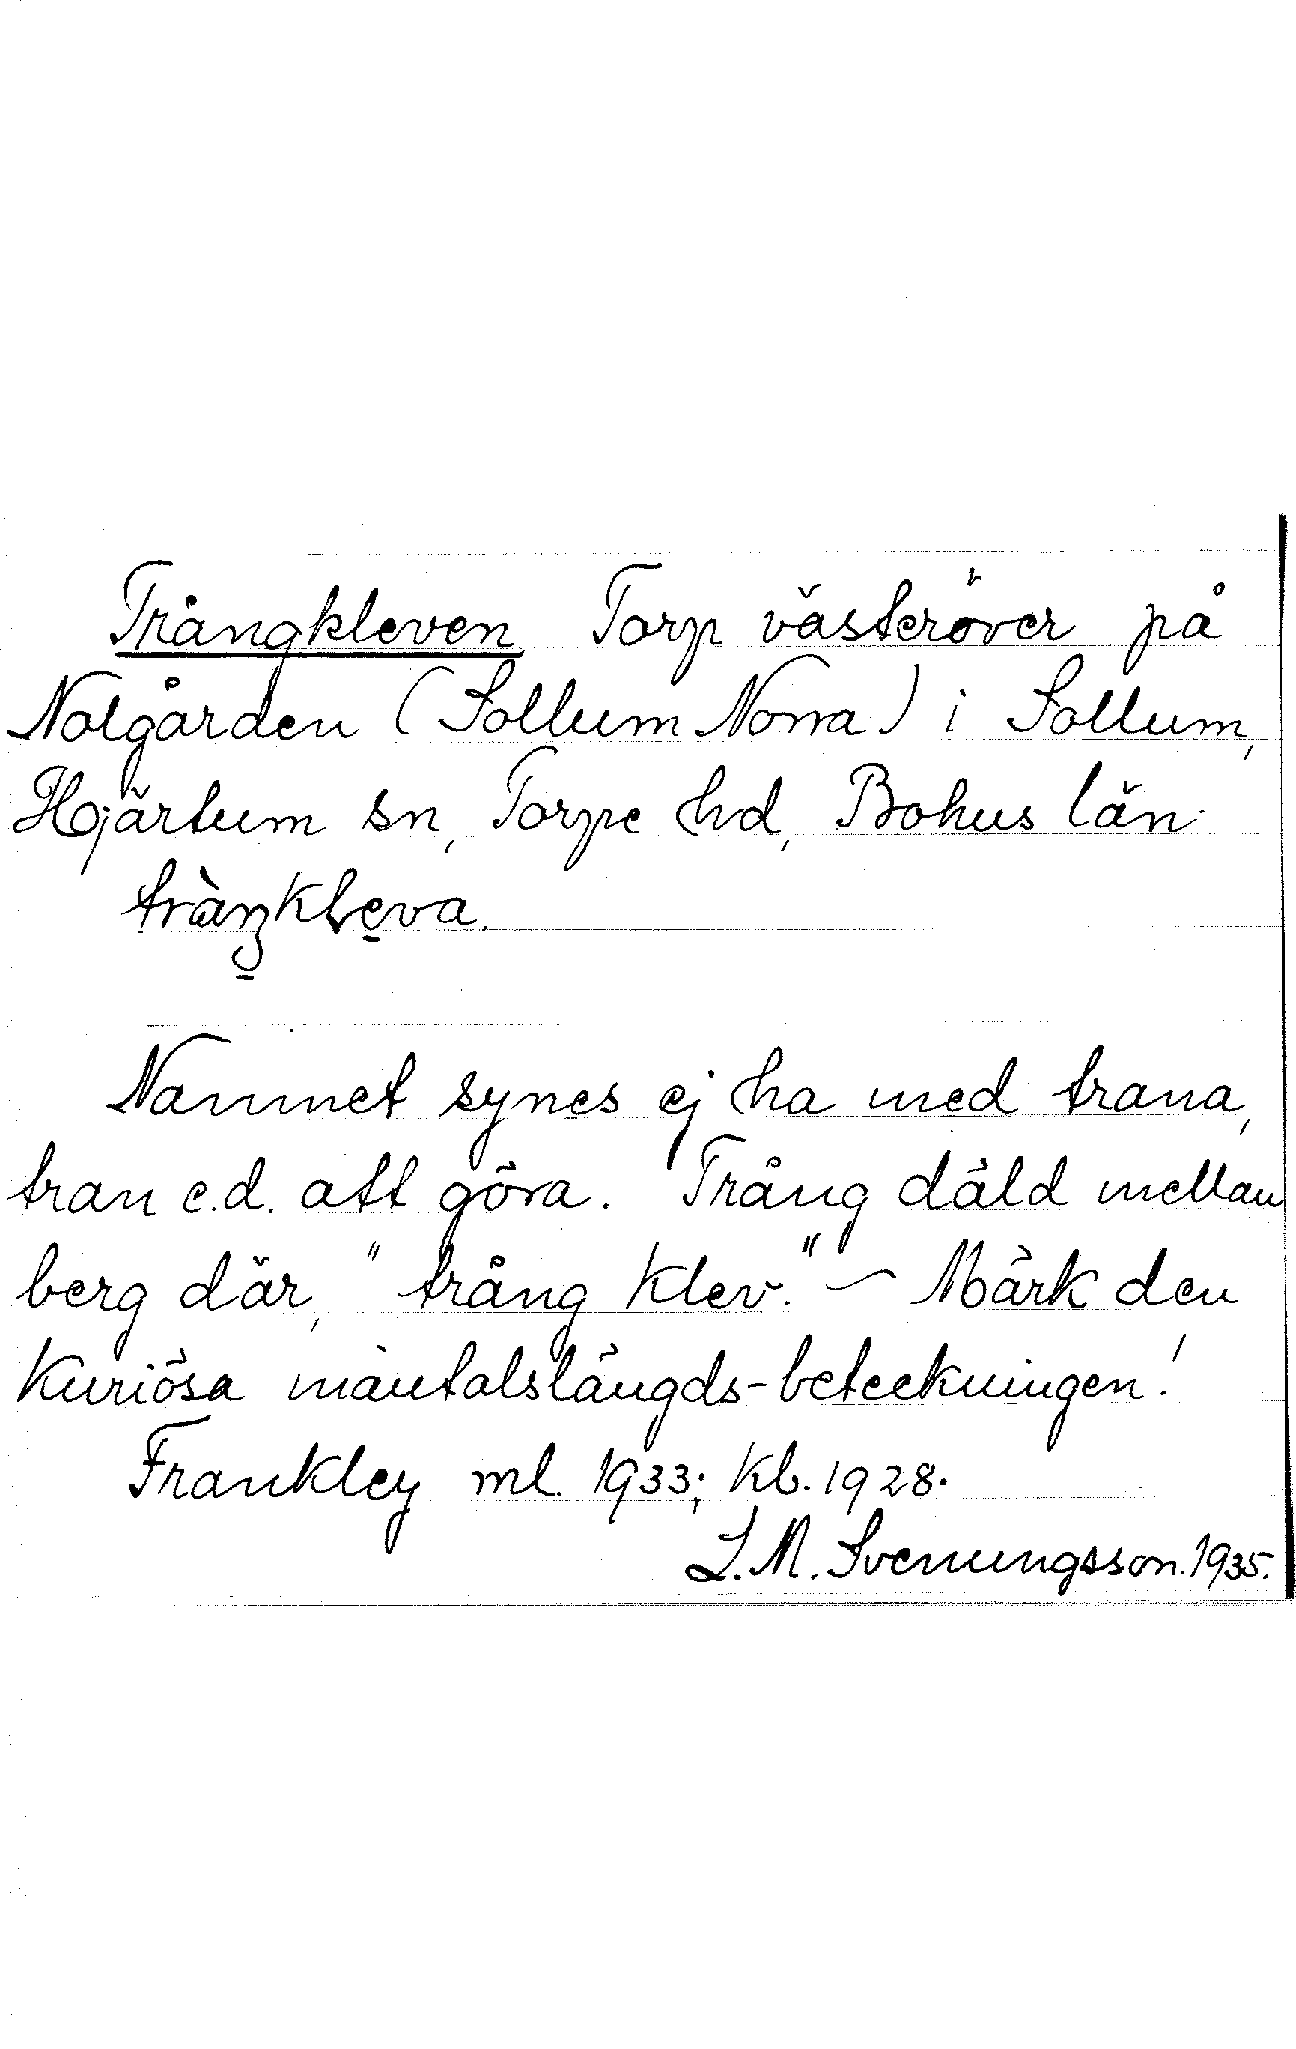 Trångkleven Torp västeröver på
Nolgården (Sollum Norra) i Sollum,
Hjärtum sn, Torpe hd, Bohus län.
Nammet synes ej ha med trana,
tran e.d. att göra. Trång däld mellan
berg där, "trång klev." – Märk den
kuriösa mantalslängds-beteckningen!
Frankley ml. 1933; kb. 1928.
L.M. Svenungsson. 1935.